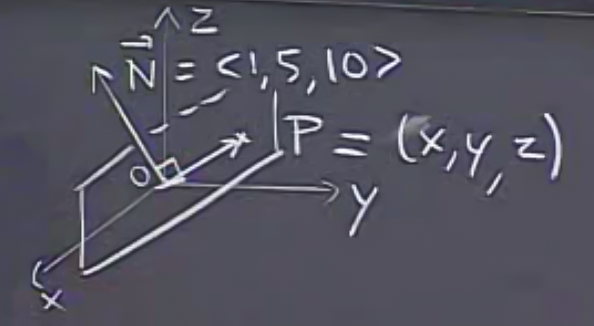 z
N⃗ = <1,5,10>
P = (x,y,z)
O
y
x